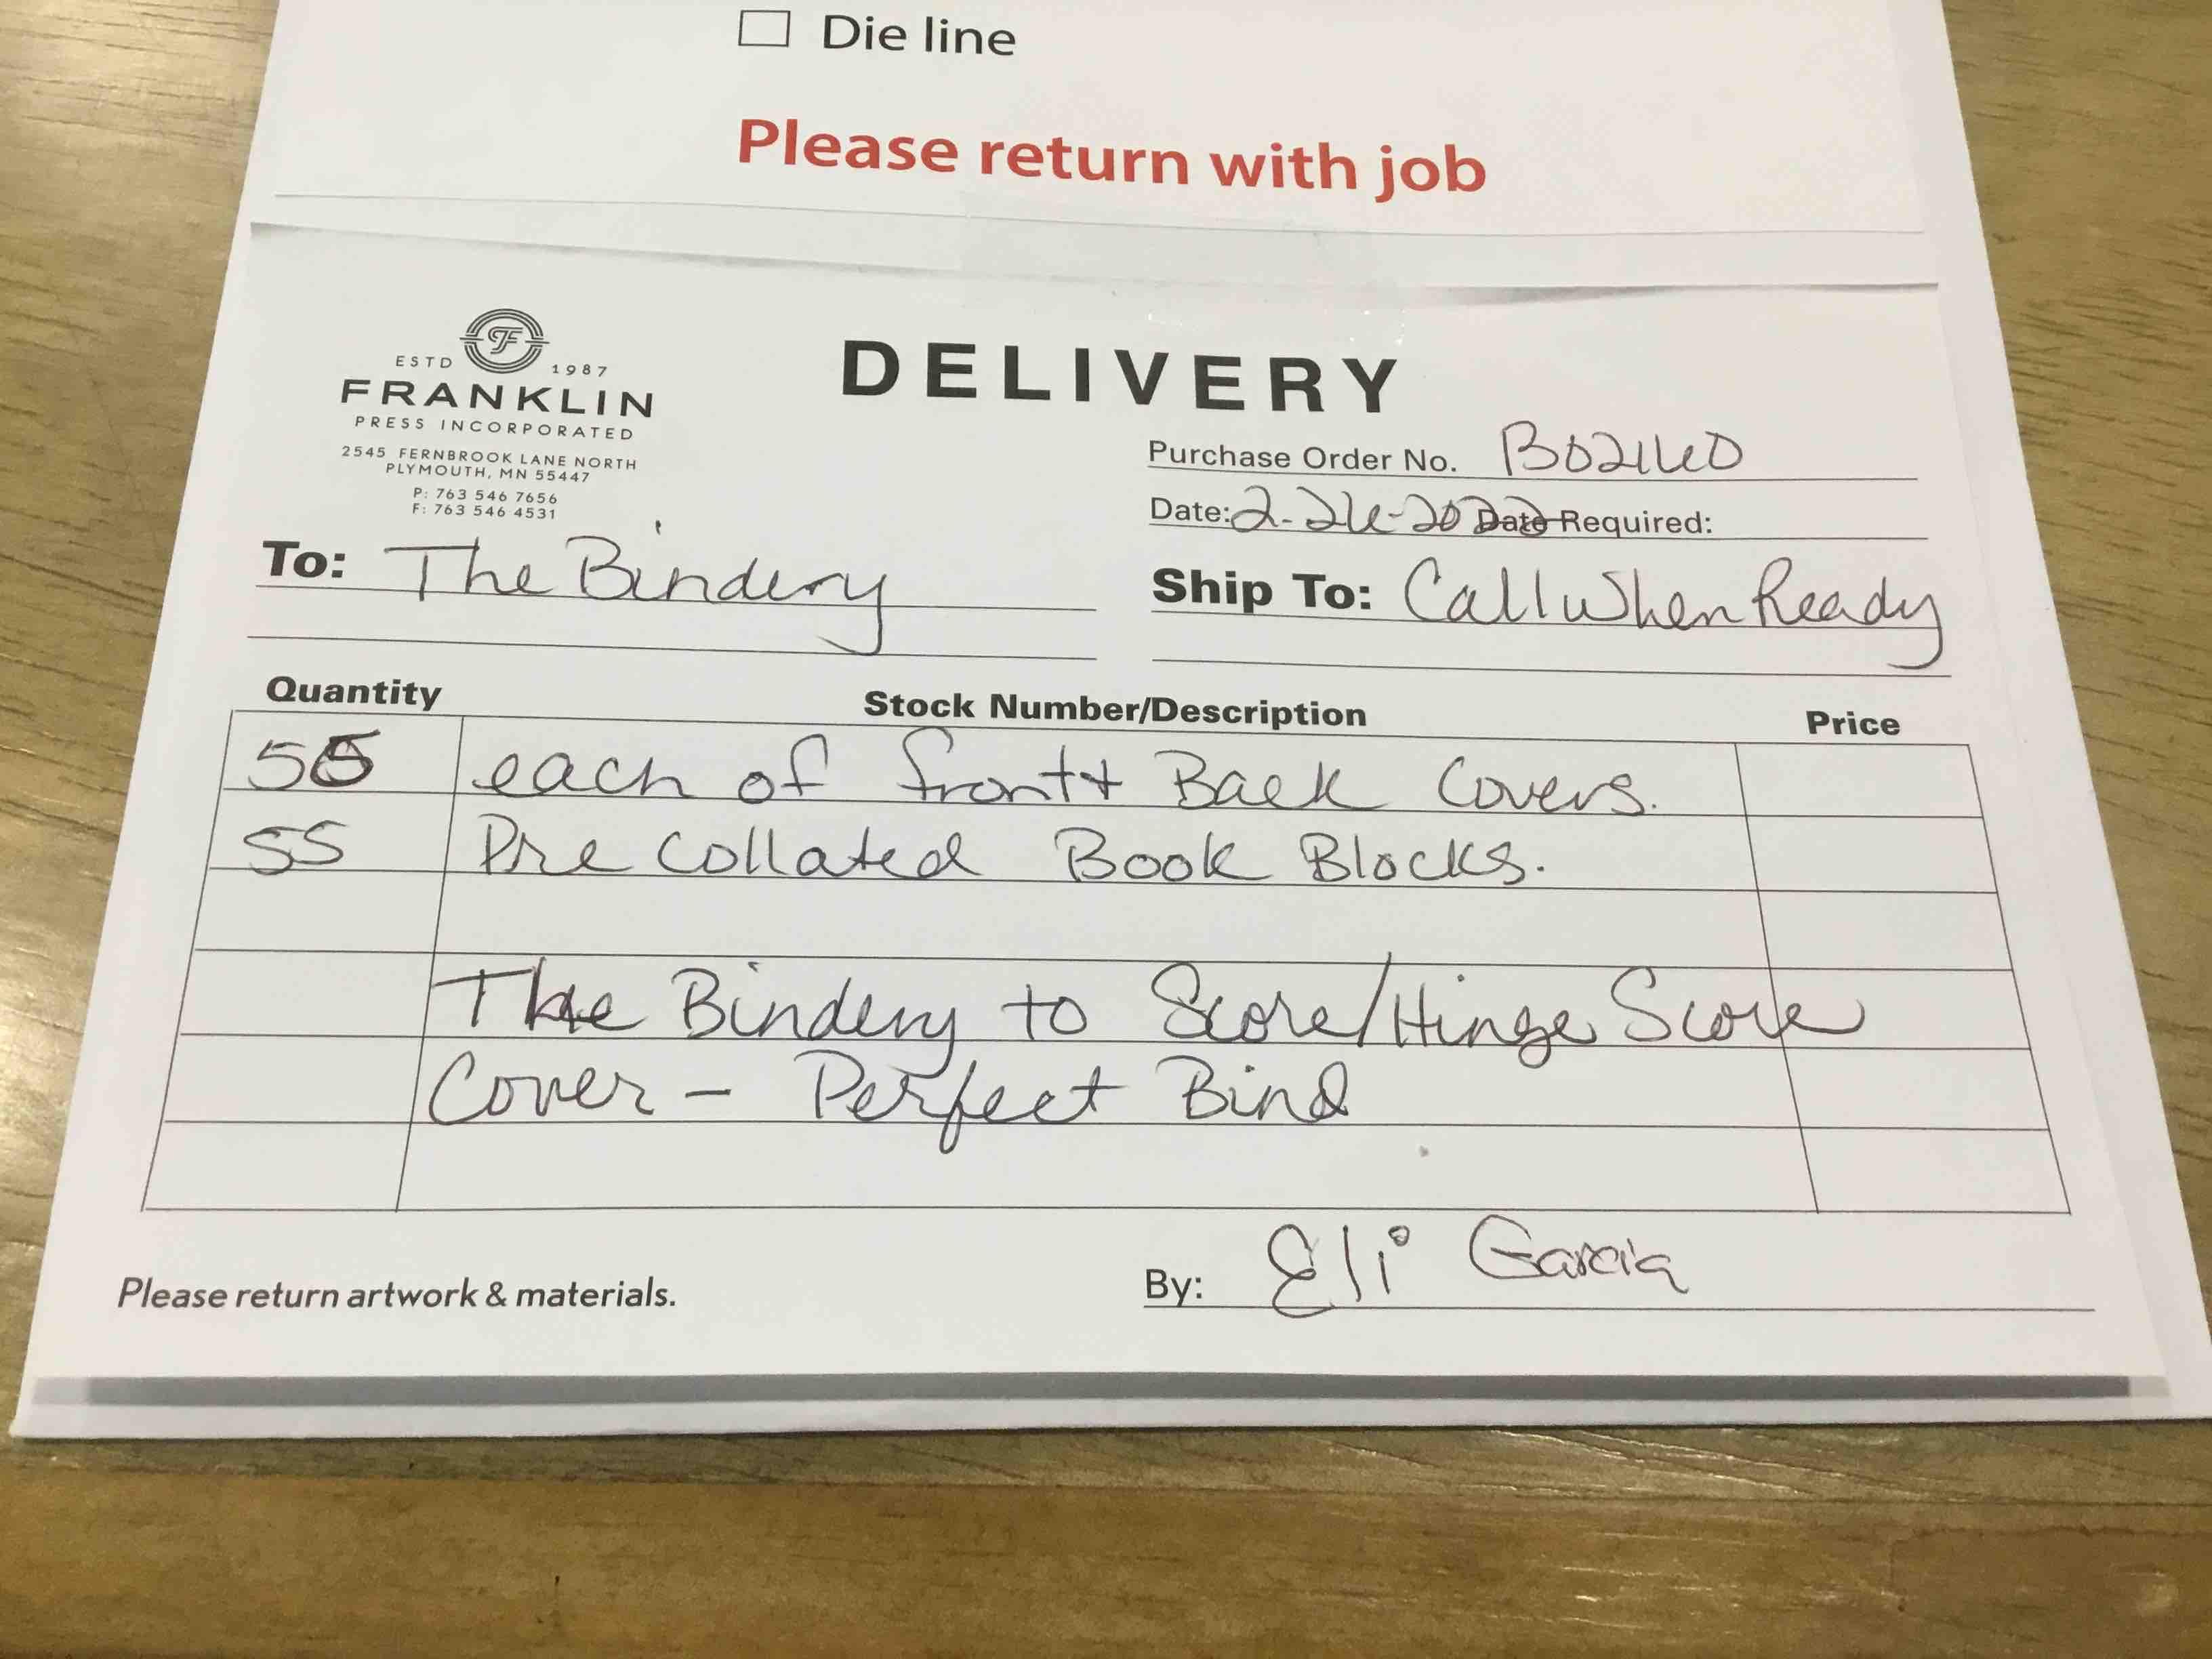 Die line
Please return with job
ESTD 1987
FRANKLIN
PRESS INCORPORATED
2545 FERNBROOK LANE NORTH
PLYMOUTH, MN 55447
P: 763 546 7656
F: 763 546 4531
DELIVERY
Purchase Order No. B02160
Date: 2-26-2022 Date Required:
To: The Bindery
Ship To: Call When Ready
Quantity Stock Number/Description Price
55 each of front + Back Covers.
55 Pre Collated Book Blocks.
The Bindery to Score/Hinge Score
Cover - Perfect Bind
Please return artwork & materials.
By: Eli Garcia